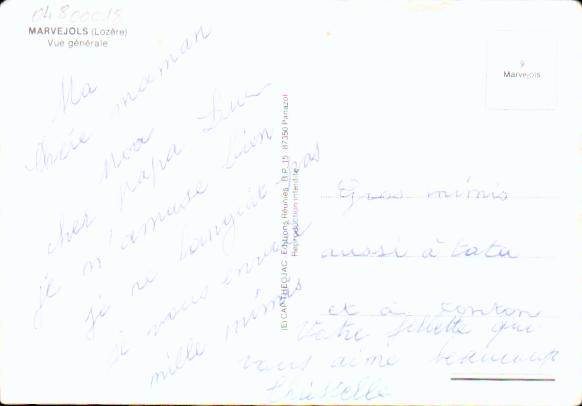 04800015
MARVEJOLS (Lozère)
Vue générale
9
Marvejols
Ma
chère maman
mon
cher papa
je m'amuse bien
je ne languit pas
je vous envoie
mille mimis
(E) CAP-THEOJAC Editions Réunies B.P. 15 87350 Panazol
Reproduction interdite
Gros mimis
aussi à tata
et à tonton
Votre fillette qui
vous aime beaucoup
Christelle